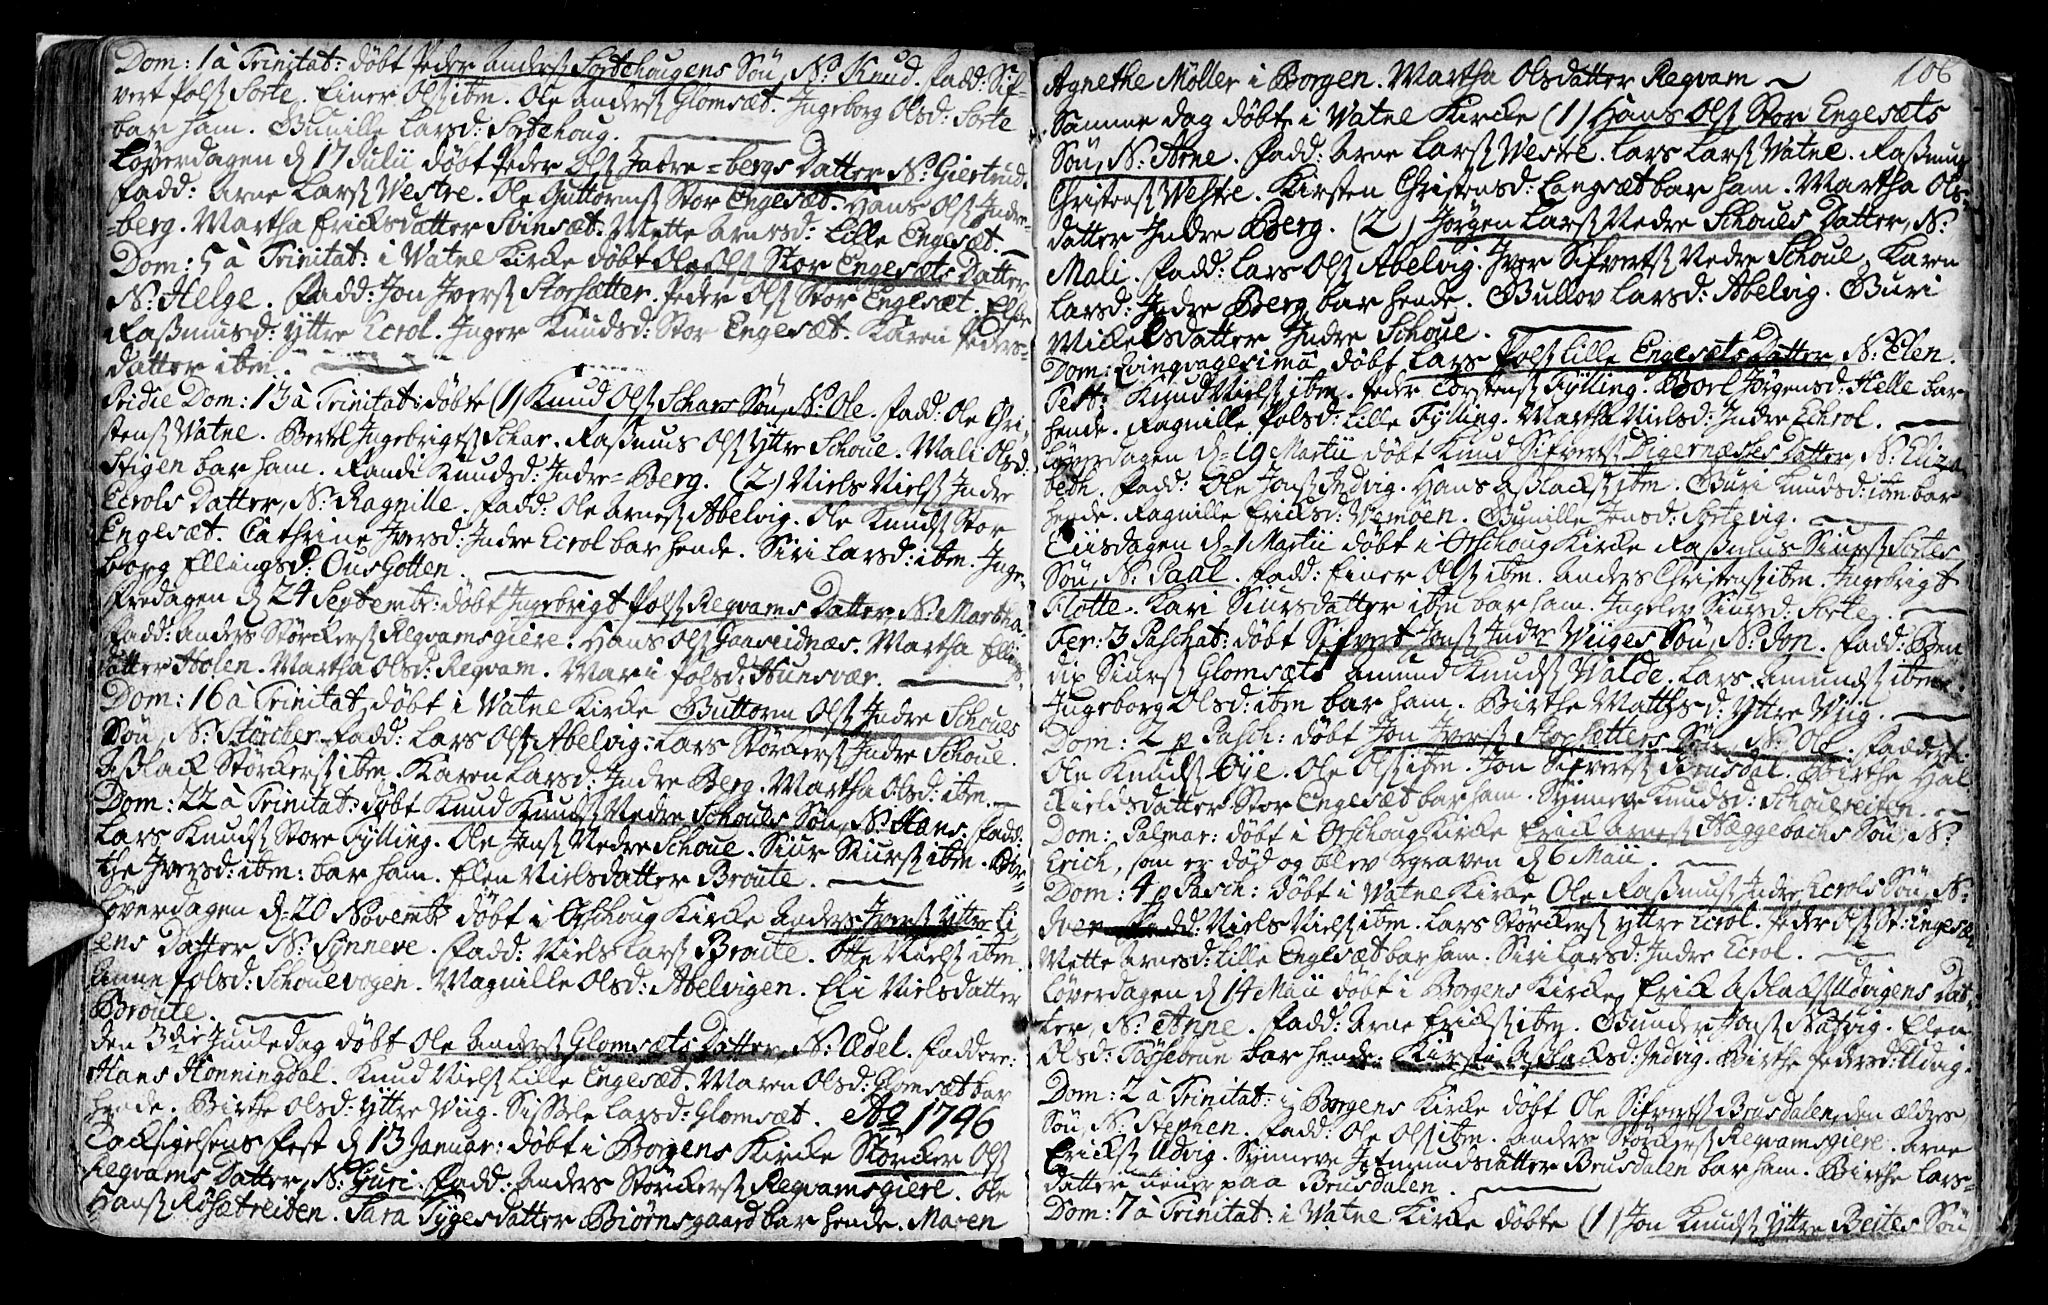 Dom: 1 à Trinitat: döbt Peder Anders Sortehougens Sön, N: Knud. Fadd: Sif-
vert Pols Sorte. Einer Ols ibm. Ole Anders Glomsæt. Ingeborg Olsd: Sorte
bar ham. Gunille Larsd: Sortehoug.
Löverdagen d 17 Julii döbt Peder Ols Indre=bergs Datter N: Giertrud.
Fadd: Arne Lars Westre. Ole Guttorms Stor Engesæt. Hans Ols Indre-
=berg. Martha Ericksdatter Svinsæt. Mette Arnsd: Lille Engesæt.
Dom: 5 à Trinitat: i Watne Kircke döbt Ole Ols Stor Engesæts Datter
N: Helge. Fadd: Jon Ivers Storsætter. Peder Ols Stor Engesæt.
Rasmusd: Yttre Ecrol. Inger Knudsd: Stor Engesæt. Karen Peders-
datter ibm.
Pridie Dom: 13 à Trinitat: döbte (1) Knud Ols Schars Sön, N: Ole. Fadd: Ole Chri-
stens Watne. Bertel Ingebrigts Schar. Rasmus Ols Yttre Schoue. Mali Olsd:
Stigen bar ham. Randi Knudsd: Indre=Berg. (2) Niels Niels Indre
Ecrols Datter, N: Ragnille. Fadd: Ole Arnes Abelvig. Ole Knuds Stor
Engesæt. Cathrine Iversd: Indre Ecrol bar hende. Siri Larsd: ibm. Inge-
borg Ellingsd: Ousgotten.
Fredagen d 24 Septembr: döbt Ingebrigt Pols Regvams Datter, N: Martha.
Fadd: Anders Störckers Regvamsgiere. Hans Ols Ganseidnæs. Martha Ellings-
datter Holen. Martha Olsd: Regvam. Mari Polsd: Hunsvær.
Dom: 16 à Trinitat, döbt i Watne Kircke Guttorm Ols Indre Schoues
Sön, N: Störcher. Fadd: Lars Ols Abelvig. Lars Störckers Indre Schoue.
Aslack Störckers ibm. Karen Larsd: Indre Berg. Martha Olsd: ibm.
Dom: 22 à Trinitat: döbt Knud Knuds Nedre Schoues Sön, N: Hans. Fadd:
Lars Knuds Store Fylling. Ole Jens Nedre Schoue. Siur Siurs ibm. Bir-
the Iversd: ibm: bar ham. Elen Nielsdatter Broute.
Löverdagen d 20 Novemb döbt i Orschoug Kircke Anders Ivers Yttre Li-
ens Datter N: Synneve. Fadd: Niels Lars Broute. Otte Niels ibm.
Anne Polsd: Schouevogen. Magnille Olsd: Abelvigen. Eli Nielsdatter
Broute.
Den 3die Juuledag döbt Ole Anders Glomsæts Datter, N: Ædel. Faddere:
Hans Honningdal. Knud Niels Lille Engesæt. Maren Olsd: Glomsæt bar
hende. Birthe Olsd: Yttre Wiig. Sissele Larsd: Glomsæt. Ao 1796
Tacksigelsens Fest d 13 Januar: döbt i Borgens Kircke Störcker Ols
Regvams Datter, N: Guri. Fadd: Anders Störckers Regvamsgiere. Ole
Hans Röisetreiten. Sara Tygesdatter Biörnsgaard bar hende. Maren
106
Agnethe Möller i Borgen. Martha Olsdatter Regvam
Samme dag döbte i Watne Kircke (1) Hans Ols Stor Engesæts
Sön, N: Arne. Fadd: Arne Lars Westre. Lars Lars Watne. Rasmus
Christens Westre. Kirsten Christensd: Langsæt bar ham. Martha Ols-
datter Indre Berg. (2) Jörgen Lars Nedre Schoues Datter, N:
Mali. Fadd: Lars Ols Abelvig. Iver Sifverts Nedre Schoue. Karen
Larsd: Indre Berg bar hende. Gullov Larsd: Abelvig. Guri
Mickelsdatter Indre Schoue.
Dom: Qvinqvagesima döbt Lars Pols Lille Engesæts Datter N: Elen.
Test: Knud Niels ibm. Peder Torstens Fylling. Borl Jörgensd: Helle bar
hende. Ragnille Polsd: Lille Fylling. Martha Nielsd: Indre Ecrol.
Löverdagen d 19 Martii döbt Knud Sifverts Digernæsses Datter, N: Eliza-
beth. Fadd: Ole Jons Indvig. Hans Aslacks ibm. Guri Knudsd: ibm bar
hende. Ragnille Ericksd: Vemoen. Gunille Jensd: Sortevig.
Tiisdagen d 1 Martii döbt i Orschoug Kircke Rasmus Siurs Sortes
Sön, N: Paal. Fadd: Einer Ols ibm. Anders Christens ibm. Ingebrigt
Flotte. Kari Siursdatter ibm bar ham. Ingelev Siursd: Sorte.
Fer: 3 Paschat: döbt Sifvert Jons Indre Wiiges Sön, N: Jon. Fadd: Ben-
dix Siurs Glomsæt. Amund Knuds Walde. Lars Amunds ibm.
Ingeborg Olsd: ibm bar ham. Birthe Matthsd: Yttre Wiig.
Dom: 2 p Pasch: döbt Jon Ivers Storsætters Sön, N: Ole. Fadder:
Ole Knuds Öye. Ole Ols ibm. Jon Sifverts Brusdal. Birthe Hal-
kieldsdatter Stor Engesæt bar ham. Synneve Knudsd: Schouereiten.
Dom: Palmar: döbt i Orschoug Kircke Erick Arnes Hæggebachs Sön, N:
Erich, som er död og blev begraven d 6 Maii.
Dom: 4 p Pasch: döbt i Watne Kircke Ole Rasmus Indre Ecrols Sön, N:
Iver. Fadd: Niels Niels ibm. Lars Störckers Yttre Ecrol. Peder Ols St: Engesæt
Mette Arnesd: Lille Engesæt bar ham. Siri Larsd: Indre Ecrol.
Löverdagen d 14 Maii döbt i Borgens Kircke, Erick Aslacks Udvigens Dat-
ter, N: Anne. Fadd: Arne Ericks ibm. Gunder Hans Nasvig. Elen
Olsd: bar hende. Kirsti Aslacksd: Indvig. Birthe Pedersd: Udvig.
Dom: 2 à Trinitat: i Borgens Kircke döbt Ole Sifverts Brusdalen, den ældres
Sön, N: Stephen. Fadd: Ole Ols ibm. Anders Störckers Regvamsgiere. Arne
Ericks Udvig. Synneve Jetmundsdatter Brusdalen bar ham. Birthe Lars-
datter paa Brusdalen.
Dom: 7 à Trinitat: i Watne Kircke döbte (1) Jon Knuds Yttre Beites Sön